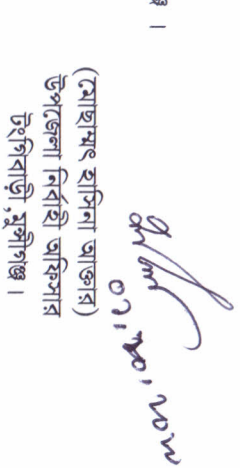 (মোছাম্মৎ হাসিনা আক্তার)
উপজেলা নির্বাহী অফিসার
টংগিবাড়ী, মুন্সীগঞ্জ।